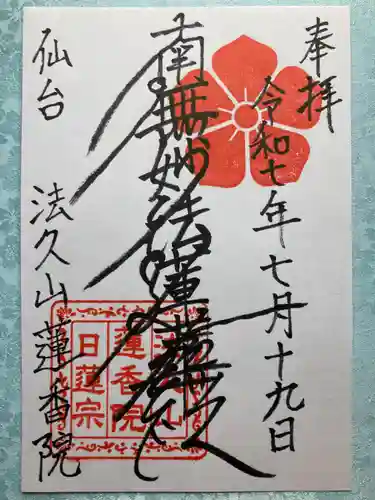 奉拝
令和七年七月十九日
南無妙法蓮華経
仙台
法久山蓮香院
法久山
蓮香院
日蓮宗